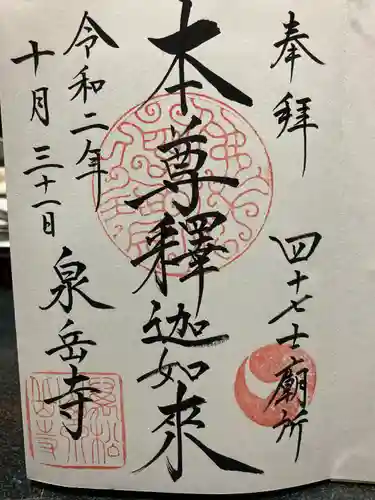 奉拝
四十七士廟所
本尊釋迦如來
令和二年
十月三十一日
泉岳寺